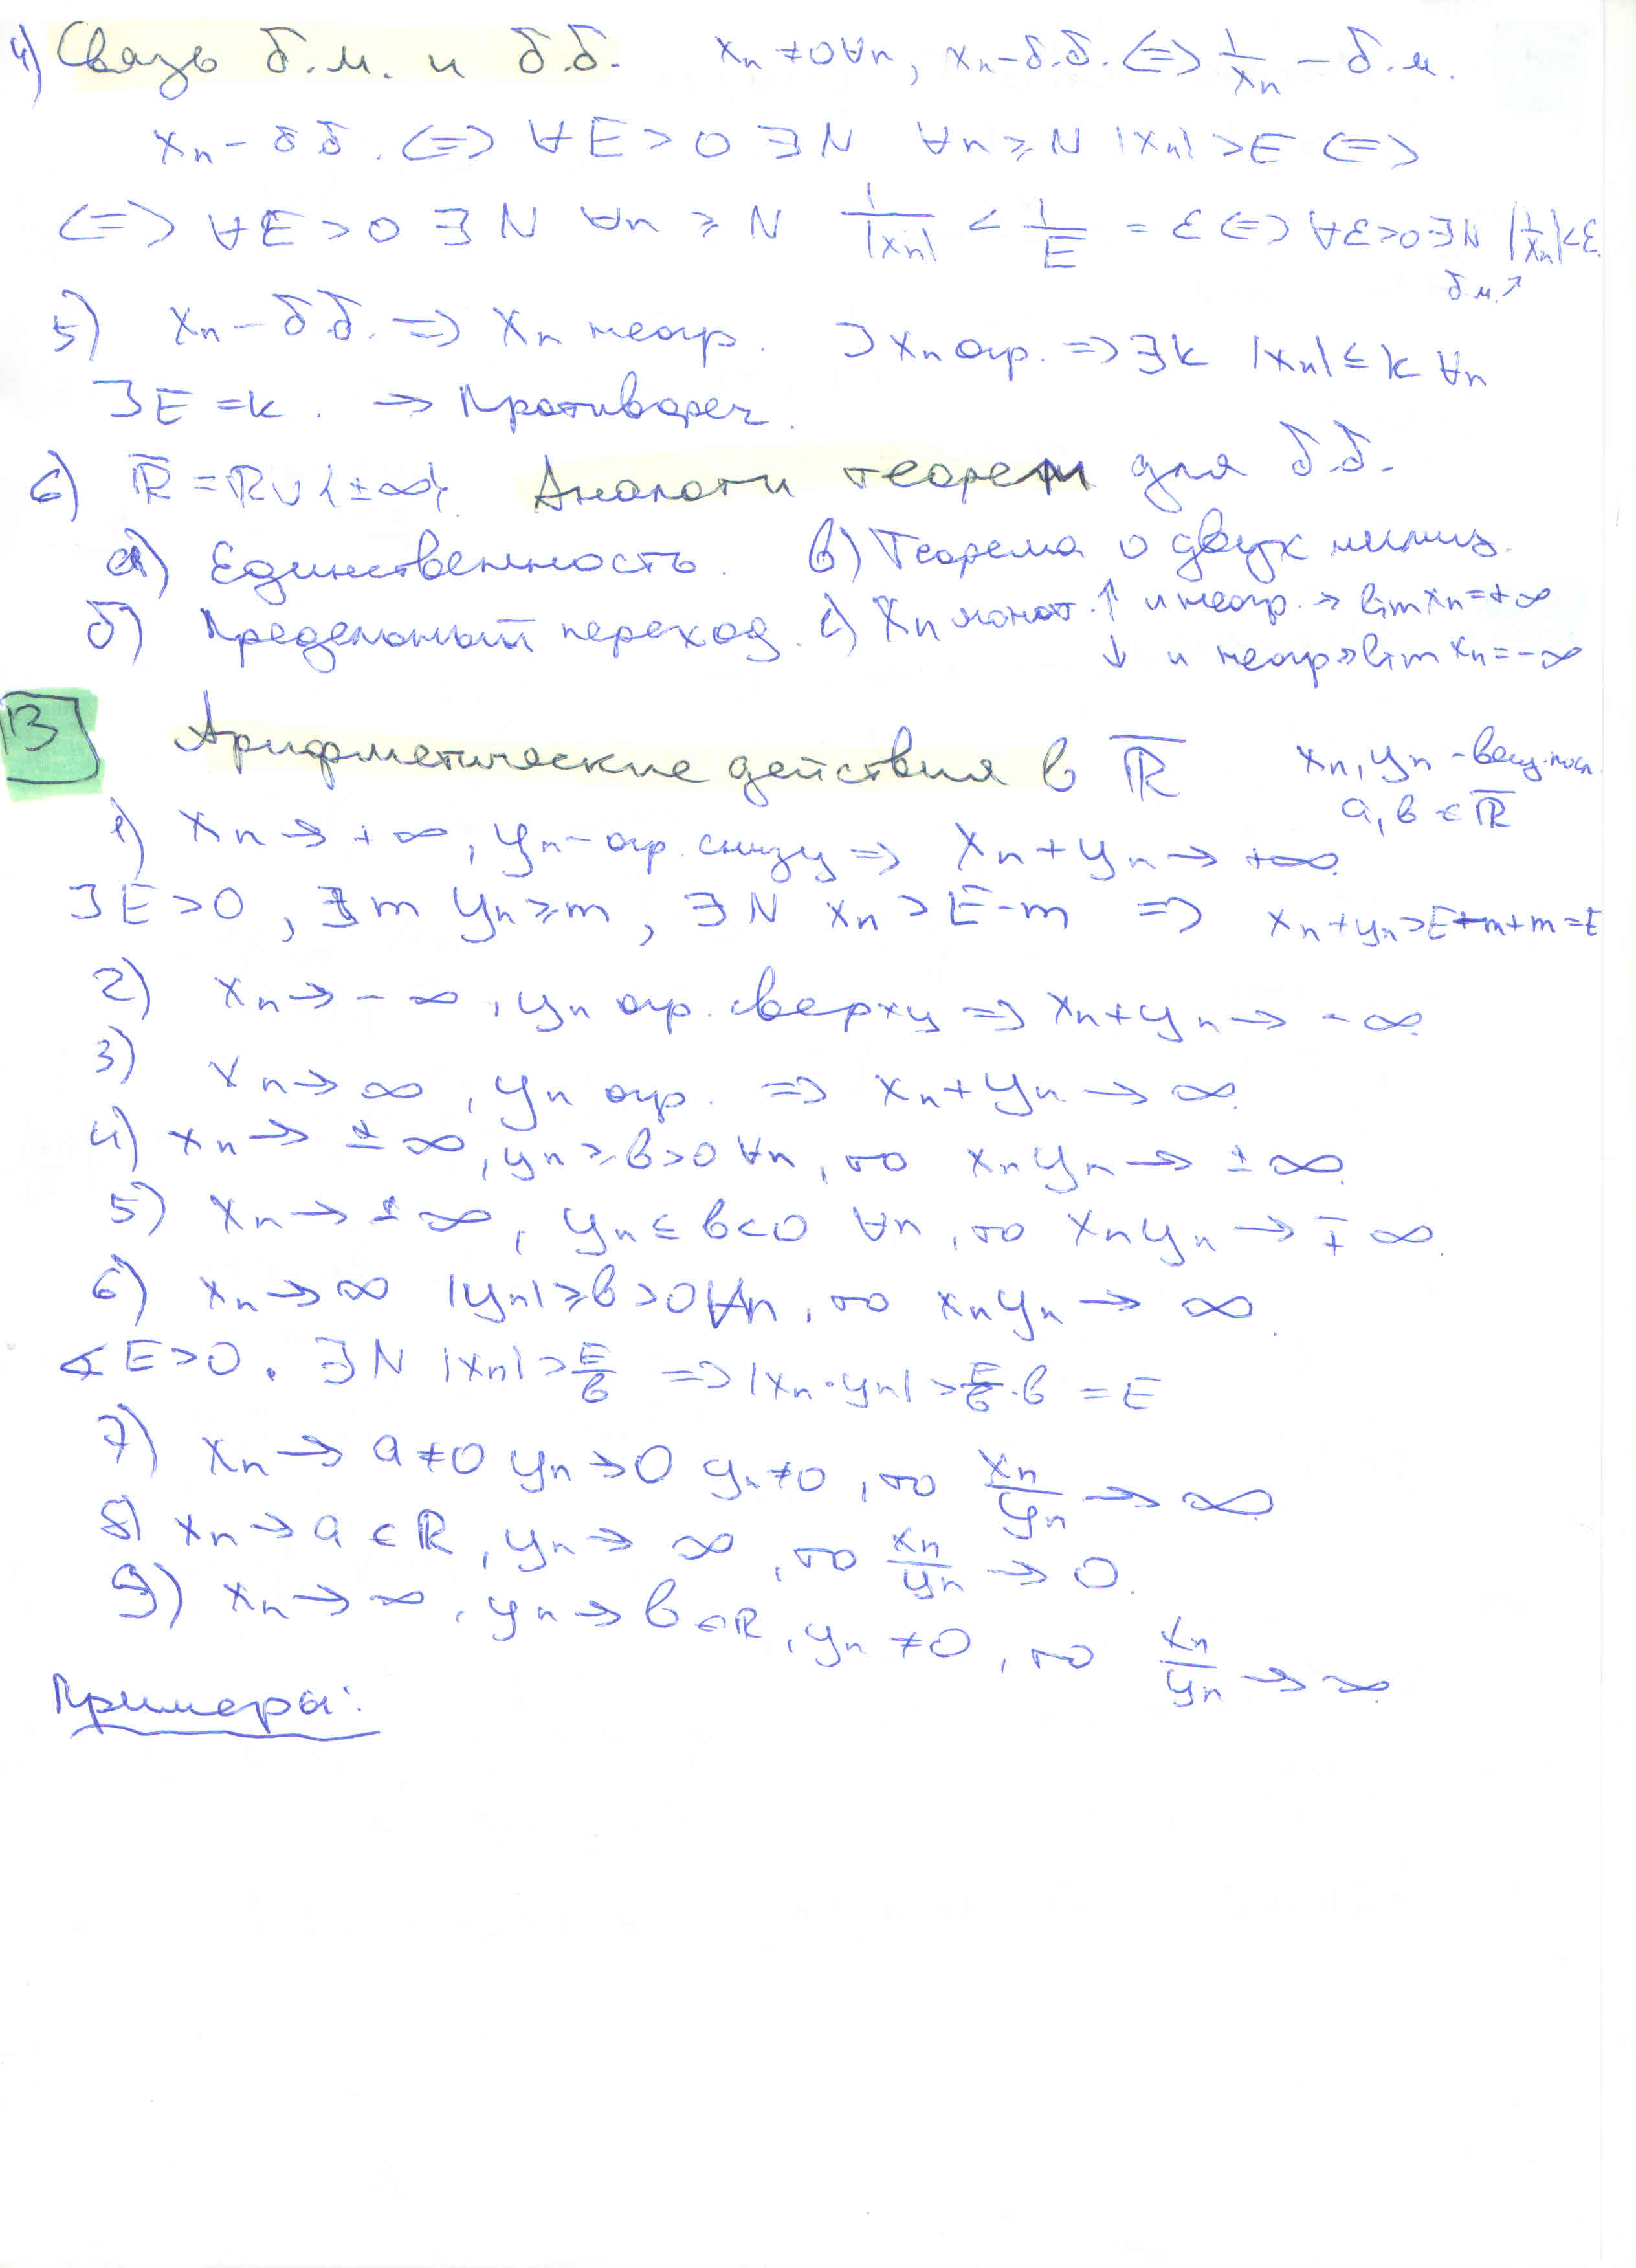 4) Связь б.м. и б.б. xₙ ≠ 0 ∀n, xₙ - б.б. <=> 1/xₙ - б.м.
xₙ - б.б. <=> ∀E > 0 ∃N ∀n ≥ N |xₙ| > E <=>
<=> ∀E > 0 ∃N ∀n ≥ N 1/|xₙ| < 1/E = ε <=> ∀ε>0 ∃N |1/xₙ|<ε.
б.м.↗
5) xₙ - б.б. => xₙ неогр. ⊐ xₙ огр. => ∃k |xₙ| ≤ k ∀n
∃E = k. → Противореч.
6) ℝ̅ = ℝ∪{±∞}. Аналоги теорем для б.б.
а) Единственность. в) Теорема о двух милиц.
б) Предельный переход. г) Xₙ монот. ↑ и неогр. → lim xₙ = +∞
↓ и неогр → lim xₙ = -∞
13 Арифметические действия в ℝ̅ xₙ, yₙ - вещ. посл.
a, b ∈ ℝ̅
1) xₙ → +∞, yₙ - огр. снизу => xₙ + yₙ → +∞.
∃E > 0, ∃m yₙ ≥ m, ∃N xₙ > E - m => xₙ + yₙ > E - m + m = E
2) xₙ → -∞, yₙ огр. сверху => xₙ + yₙ → -∞.
3) xₙ → ∞, yₙ огр. => xₙ + yₙ → ∞.
4) xₙ → ±∞, yₙ ≥ b > 0 ∀n, то xₙyₙ → ±∞.
5) xₙ → ±∞, yₙ ≤ b < 0 ∀n, то xₙyₙ → ∓∞.
6) xₙ → ∞ |yₙ| ≥ b > 0 ∀n, то xₙyₙ → ∞.
∢ E > 0. ∃N |xₙ| > E/b => |xₙ·yₙ| > E/b · b = E
7) xₙ → a ≠ 0 yₙ → 0 yₙ ≠ 0, то xₙ/yₙ → ∞
8) xₙ → a ∈ ℝ, yₙ → ∞, то xₙ/yₙ → 0.
9) xₙ → ∞, yₙ → b ∈ ℝ, yₙ ≠ 0, то xₙ/yₙ → ∞.
Примеры: